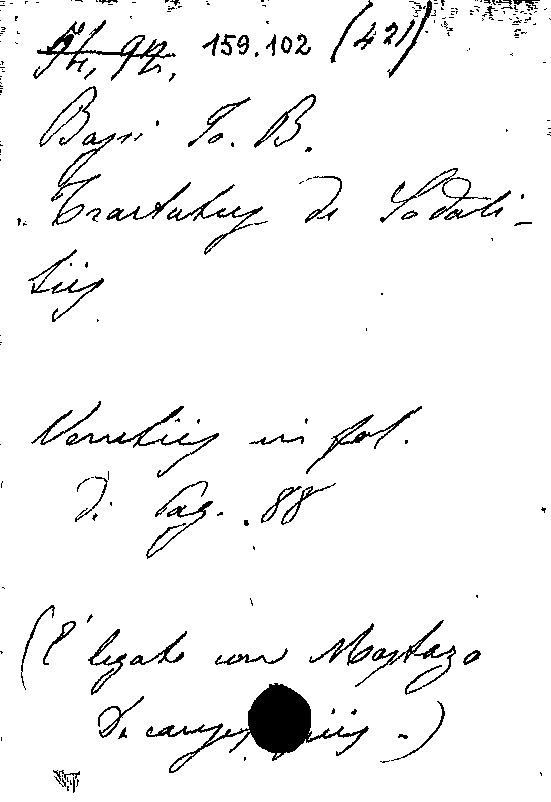 159.102 (421)
Bassi Jo. B.
Tractatus de Sodali-
tiis
Venetiis in fol.
di Pag. 88
(È legato con Mastazo
De causis piis -)